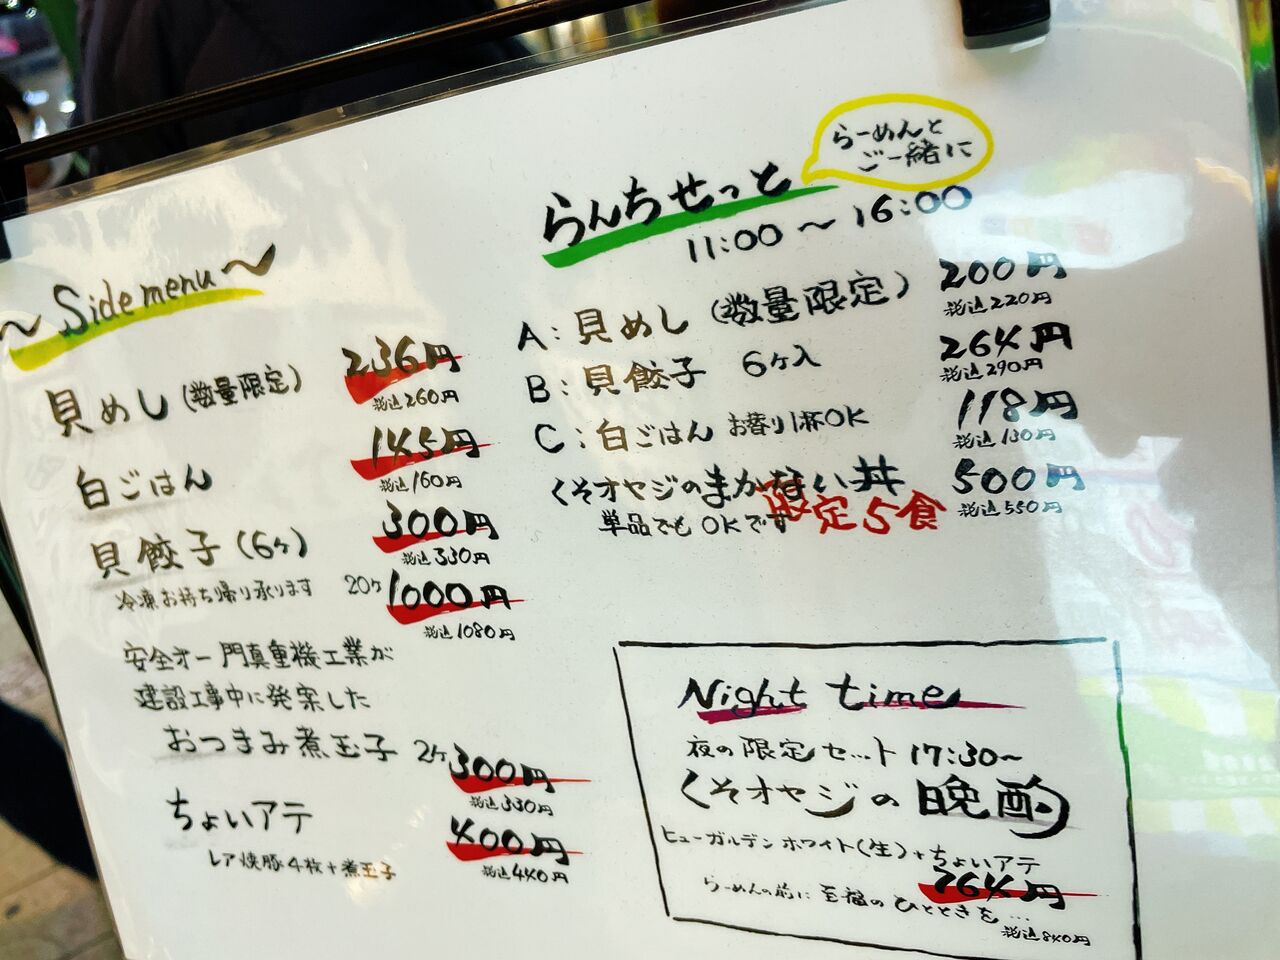 ~ Side menu ~
貝めし (数量限定) 236円
税込260円
白ごはん 145円
税込160円
貝餃子 (6ヶ) 300円
税込330円
冷凍お持ち帰り承ります 20ヶ 1000円
税込1080円
安全オー門真重機工業が
建設工事中に発案した
おつまみ煮玉子 2ヶ 300円
税込330円
ちょいアテ 400円
レア焼豚4枚+煮玉子 税込440円
らんちせっと
らーめんと
ご一緒に
11:00~16:00
A:貝めし (数量限定) 200円
税込220円
B:貝餃子 6ヶ入 264円
税込290円
C:白ごはん お替り1杯OK 118円
税込130円
くそオヤジのまかない丼 500円
単品でもOKです 限定5食 税込550円
Night time
夜の限定セット 17:30~
くそオヤジの晩酌
ヒューガルデンホワイト(生)+ちょいアテ
764円
らーめんの前に至福のひとときを…
税込840円